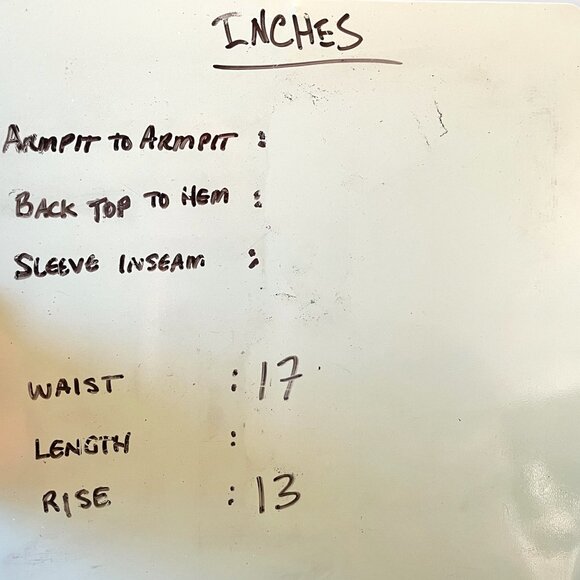 INCHES
ARMPIT TO ARMPIT :
BACK TOP TO HEM :
SLEEVE INSEAM :
WAIST : 17
LENGTH :
RISE : 13